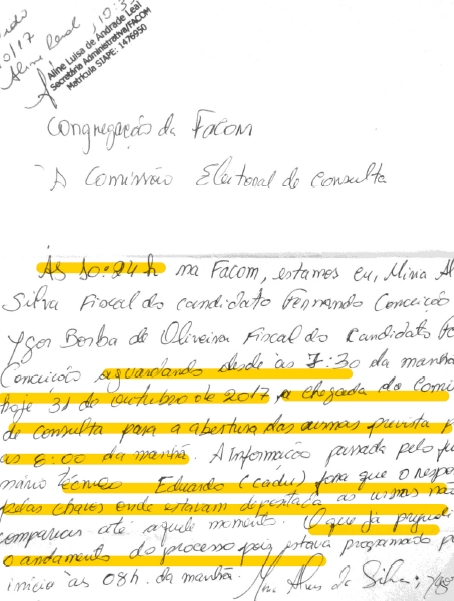 10:3
0/17
Aline Luisa de Andrade Leal
Secretária Administrativa/FACOM
Matrícula SIAPE: 1476950
Congregação da Facom
À Comissão Eleitoral de Consulta
Às 10:24 h na Facom, estamos eu, Mina Al
Silva Fiscal do candidato Fernando Conceição
Ygor Borba de Oliveira Fiscal do Candidato Fe
Conceição aguardando desde às 7:30 da manhã
hoje 31 de outubro de 2017 a chegada da Comi
de consulta para a abertura das urnas prevista p
as 8:00 da manhã. A Informação passada pelo fu
nário técnico Eduardo (cadu) fora que o respo
pelas chaves onde estavam as urnas nã
até aquele momento. O que já prejudi
o andamento do processo pois estava programado p
início às 08h. da manhã.